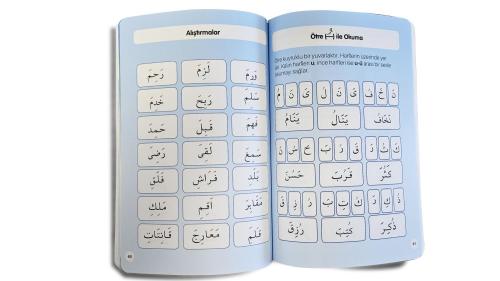 Alıştırmalar
وَرِمَ لَزِمَ رَحِمَ
سَلِمَ رَبِحَ خَدِمَ
فَهِمَ قَبِلَ حَمِدَ
سَمِعَ لَقِىَ رَضِىَ
بَلَدِ فَرَاشِ فَلَقِ
مَقَابِرَ أَقِمِ مَلِكِ
قَلَمِ مَعَارِجَ قَانِتَاتِ
40
Ötre ile Okuma
Ötre kuyruklu bir yuvarlaktır. Harflerin üzerinde yer
alır. Kalın harfleri u, ince harfleri ise u-ü arası bir sesle
okumayı sağlar.
نَخَافُ يَنَالُ يَنَامُ
كَثُرَ قَرُبَ حَسُنَ
ذُكِرَ كُتِبَ رُزِقَ
41